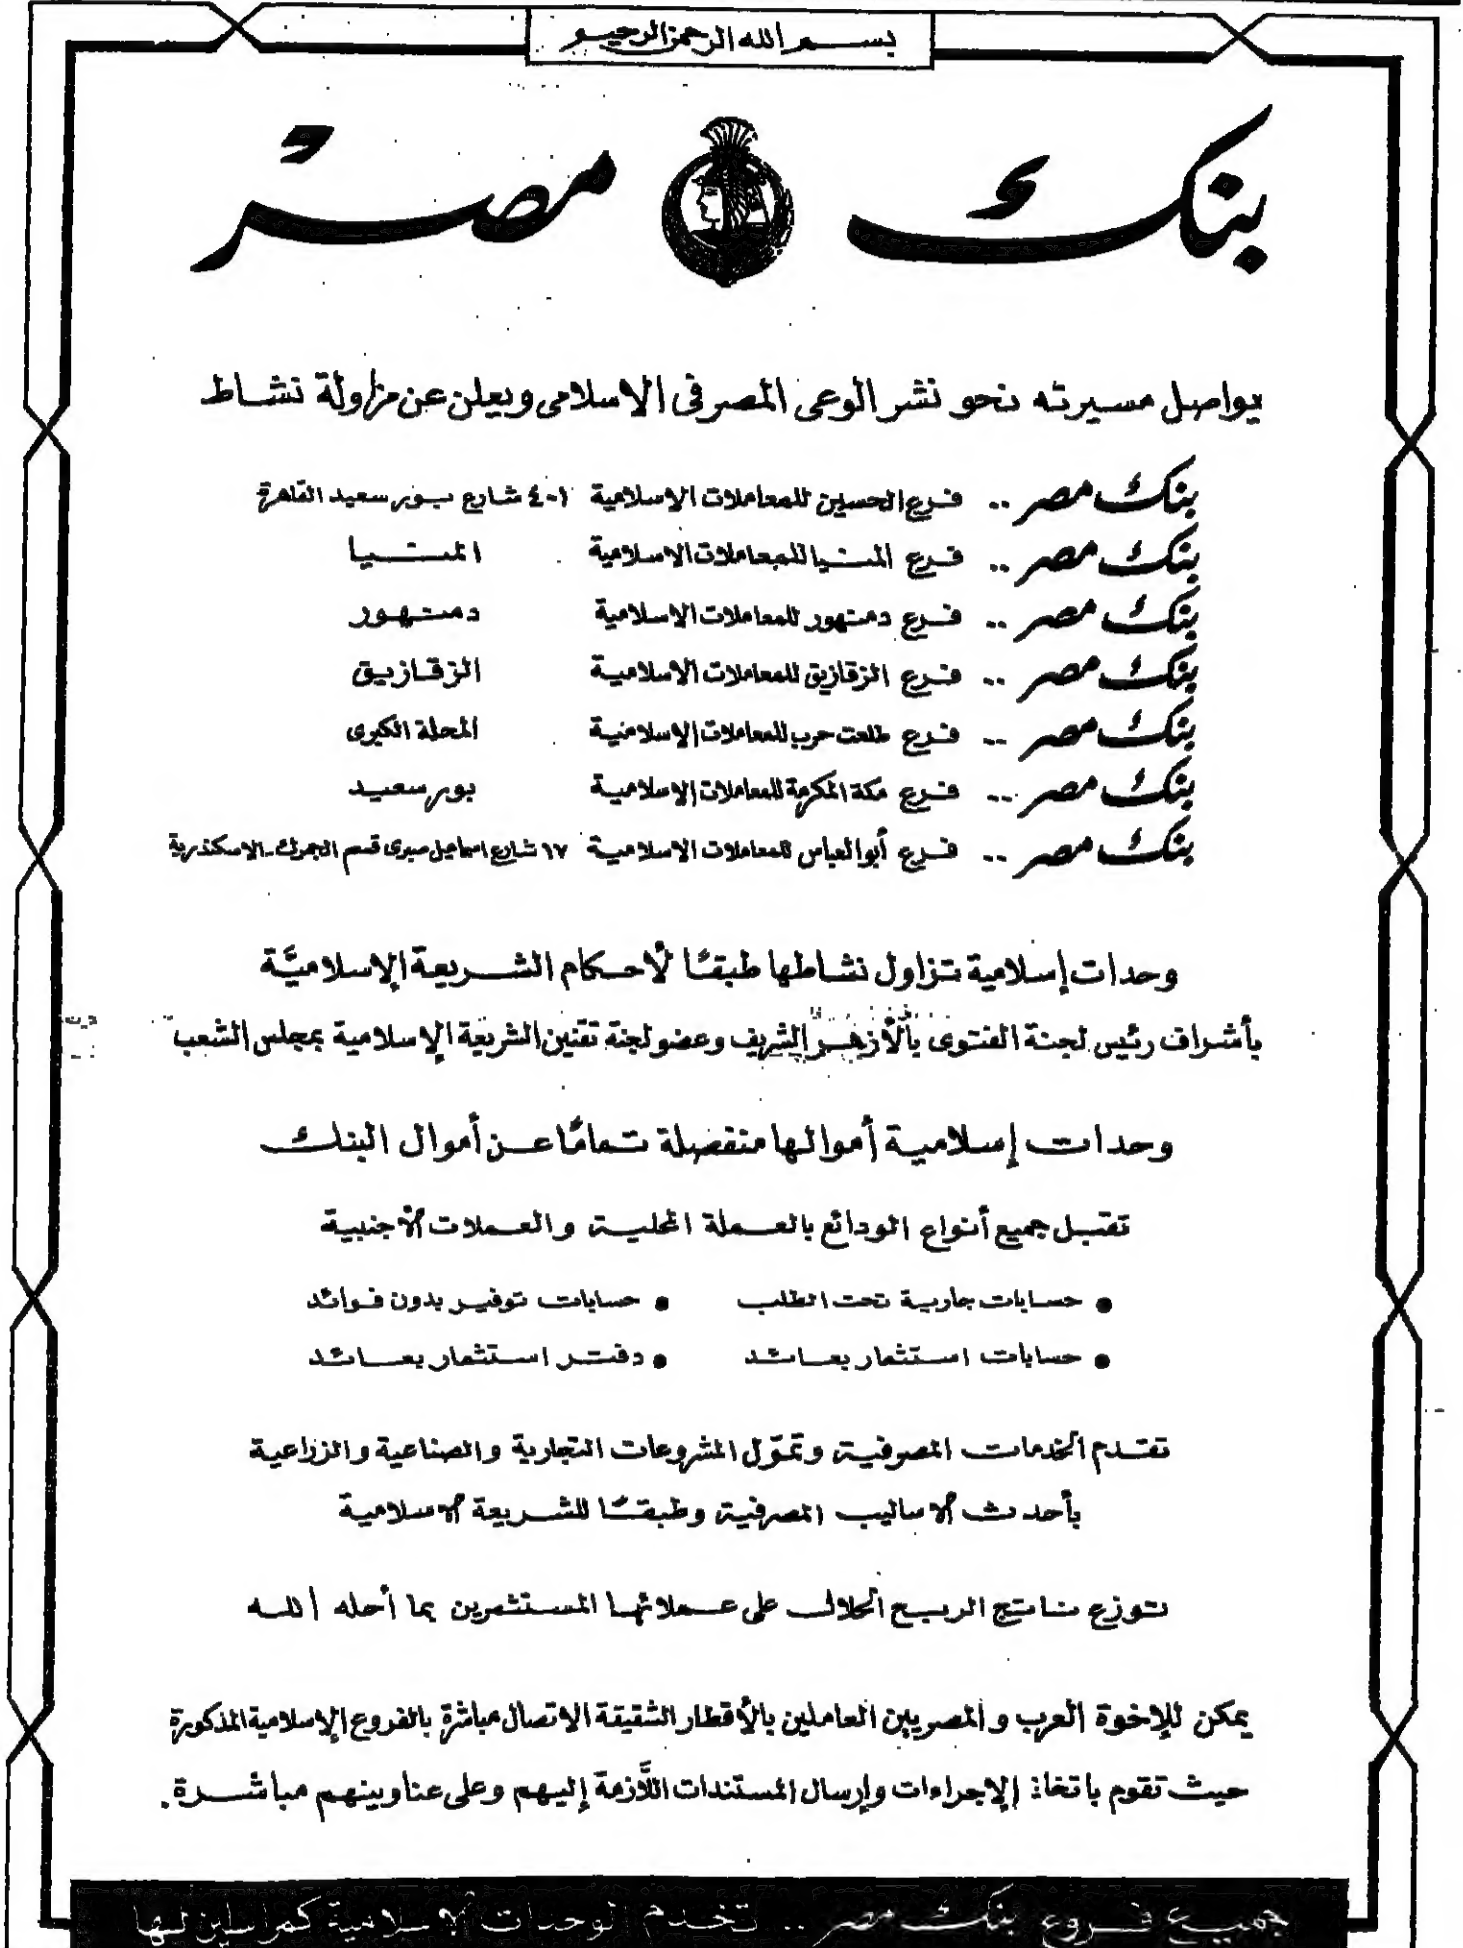 بسم الله الرحمن الرحيم
بنك مصر
يواصل مسيرته نحو نشر الوعى المصرفى الاسلامى ويعلن عن مزاولة نشاط
بنك مصر .. فرع الحسين للمعاملات الاسلامية ٤٠١ شارع بور سعيد القاهرة
بنك مصر .. فرع المنيا للمعاملات الاسلامية المنيا
بنك مصر .. فرع دمنهور للمعاملات الاسلامية دمنهور
بنك مصر .. فرع الزقازيق للمعاملات الاسلامية الزقازيق
بنك مصر .. فرع طلعت حرب للمعاملات الاسلامية المحلة الكبرى
بنك مصر .. فرع مكة المكرمة للمعاملات الإسلامية بور سعيد
بنك مصر .. فرع أبو العباس للمعاملات الاسلامية ١٧ شارع اسماعيل صبرى قسم الجمرك - الاسكندرية
وحدات إسلامية تزاول نشاطها طبقًا لأحكام الشريعة الإسلاميَّة
بأشراف رئيس لجنة الفتوى بالأزهر الشريف وعضو لجنة تقنين الشريعة الإسلامية بمجلس الشعب
وحدات إسلامية أموالها منفصلة تمامًا عن أموال البنك
تقبل جميع أنواع الودائع بالعملة المحلية والعملات الأجنبية
• حسابات جارية تحت الطلب • حسابات توفير بدون فوائد
• حسابات استثمار بعائد • دفتر استثمار بعائد
تقدم الخدمات المصرفية وتموّل المشروعات التجارية والصناعية والزراعية
بأحدث الاساليب المصرفية وطبقًا للشريعة الاسلامية
توزع ناتج الربح الحلال على عملائها المستثمرين بما أحله الله
يمكن للإخوة العرب والمصريين العاملين بالأقطار الشقيقة الاتصال مباشرة بالفروع الإسلامية المذكورة
حيث تقوم باتخاذ الإجراءات وإرسال المستندات اللَّازمة إليهم وعلى عناوينهم مباشرة.
جميع فروع بنك مصر .. تخدم الوحدات الاسلامية كمراسلين لها